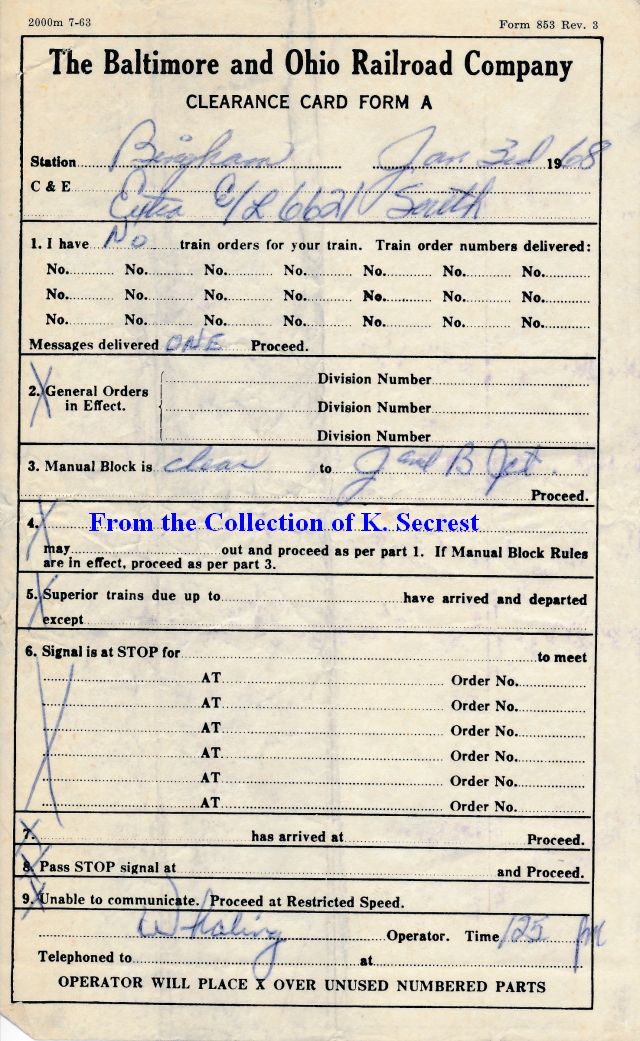 2000m 7-63
Form 853 Rev. 3
The Baltimore and Ohio Railroad Company
CLEARANCE CARD FORM A
Station Bingham Jan 3rd 1968
C & E
Extra C/L 6621 South
1. I have No train orders for your train. Train order numbers delivered:
No. No. No. No. No. No. No.
No. No. No. No. No. No. No.
No. No. No. No. No. No. No.
Messages delivered ONE Proceed.
Division Number
2. General Orders
in Effect.
Division Number
Division Number
3. Manual Block is clear to J and B Jct.
Proceed.
4.
From the Collection of K. Secrest
may out and proceed as per part 1. If Manual Block Rules
are in effect, proceed as per part 3.
5. Superior trains due up to have arrived and departed
except
6. Signal is at STOP for to meet
AT Order No.
AT Order No.
AT Order No.
AT Order No.
AT Order No.
AT Order No.
7. has arrived at Proceed.
8. Pass STOP signal at and Proceed.
9. Unable to communicate. Proceed at Restricted Speed.
Whaling Operator. Time 125 PM
Telephoned to at
OPERATOR WILL PLACE X OVER UNUSED NUMBERED PARTS